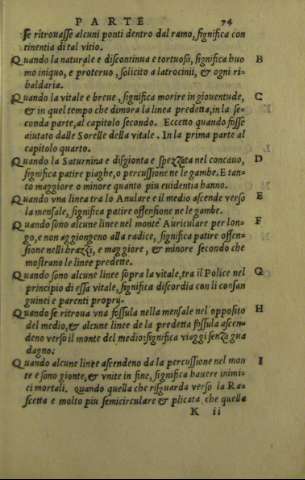 PARTE 74
se ritrouasse alcuni ponti dentro dal ramo, significa con
tinentia di tal vitio.
Quando la naturale e discontinua e tortuosa, significa huo B
mo iniquo, e proteruo, solicito a latrocinii, & ogni ri-
baldaria.
Quando la vitale e breue, significa morire in giouentude, C
& in quel tempo che dimora la linea predetta, in la se-
conda parte, al capitolo secondo. Eccetto quando fosse
aiutato dalle Sorelle della vitale. In la prima parte al
capitolo quarto.
Quando la Saturnina e disgionta e spezzata nel concauo, D
significa patire piaghe, o percussione ne le gambe. E tan-
to maggiore o minore quanto piu euidentia hanno.
Quando vna linea tra lo Anulare e il medio ascende verso E
la mensale, significa patire offensione ne le gambe.
Quando sono alcune linee nel monte Auriculare per lon- F
go, e non aggiongeno alla radice, significa patire offen-
sione nelli brazzi, e maggiore, & minore secondo che
mostrano le linee predette.
Quando sono alcune linee sopra la vitale, tra il Police nel G
principio di essa vitale, significa discordia con li consan
guinei e parenti proprij.
Quando se ritroua vna fossula nella mensale nel opposito H
del medio, & alcune linee de la predetta fossula ascen-
deno verso il monte del medio: significa viaggi senza gua
dagno.
Quando alcune linee ascendeno da la percussione nel mon I
te e sono gionte, & vnite in fine, significa hauere inimi-
ci mortali, quando quella che risguarda verso la Ra-
scetta e molto piu semicirculare & plicata che quella
K ii